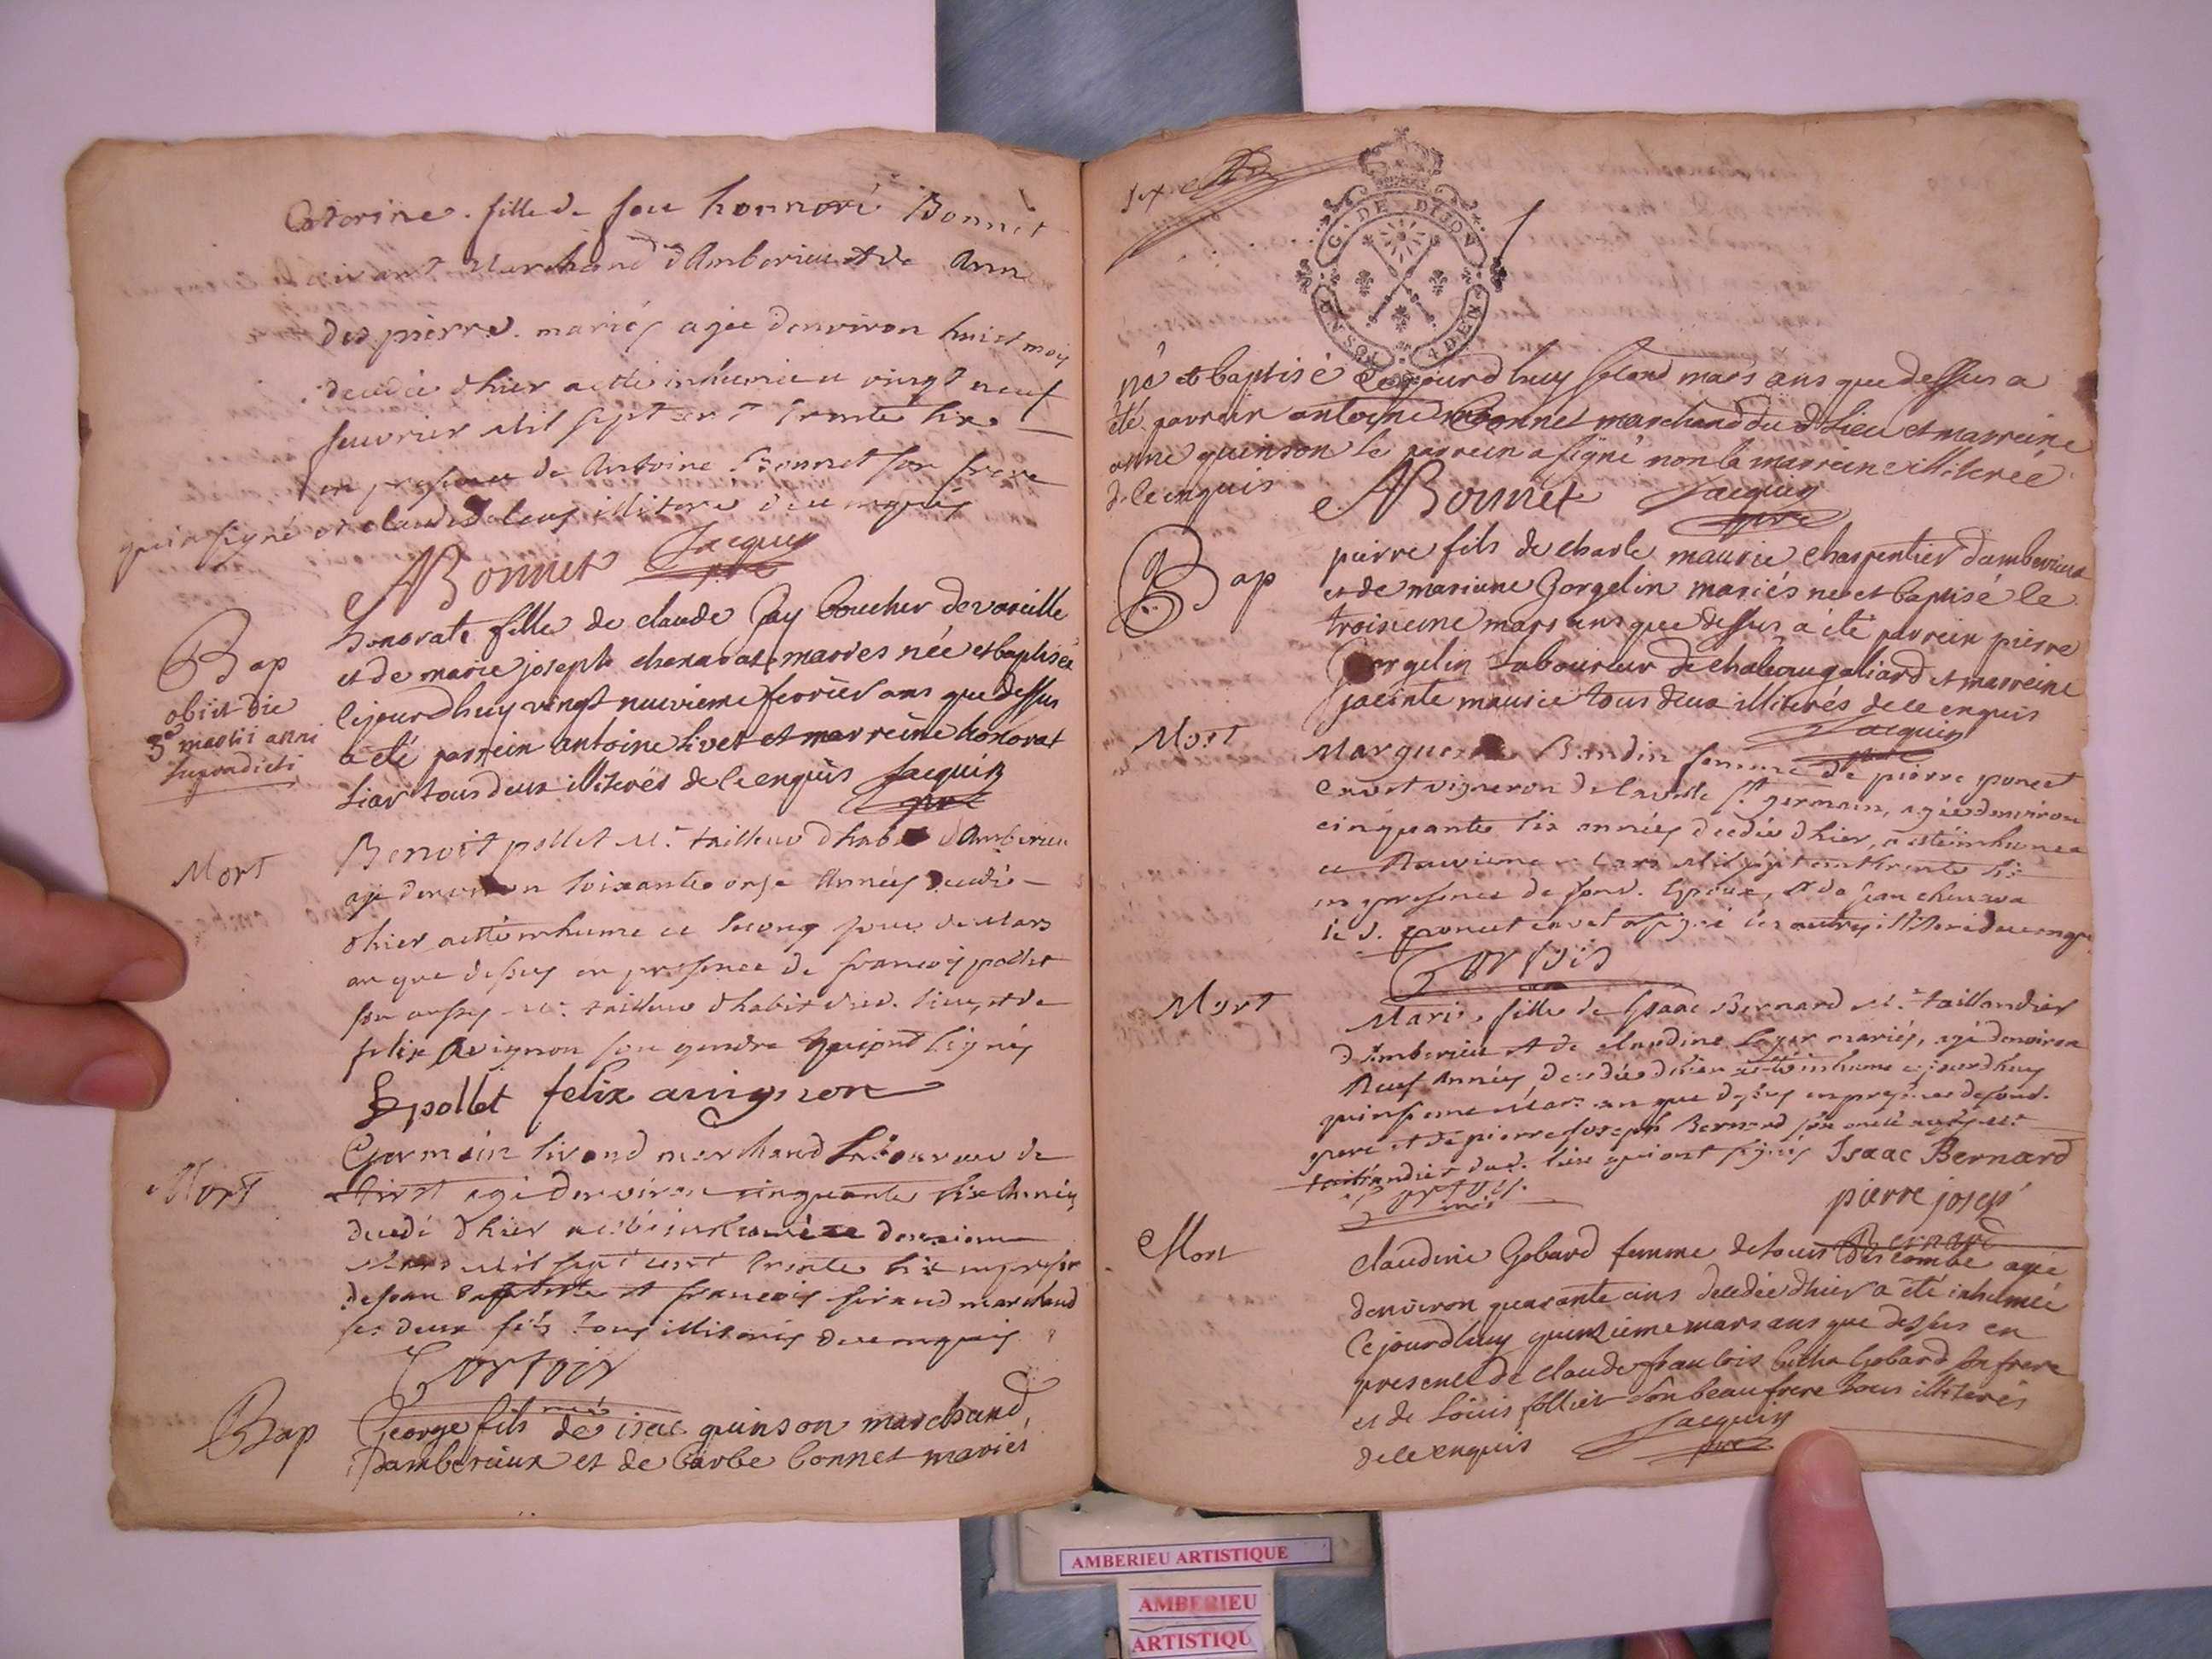 Caterine fille de feu honnoré Bonnet
vivant Marchand d'Amberieu et de Anne
des pierre mariés agée denviron huict moys
decedée d hier a esté inhumée ce vingt neuf
feuvrier Mil sept cent trente six
en presence de Antoine Bonnet son frere
qui a signé et claude illitere de ce enquis
ABonnet Jacquin
pre
Bap
obiit die
3a martii anni
supradicti
honorate fille de claude Gay boucher de vareille
et de marie joseph chenavas mariés née et baptisée
cejourdhuy vingt nuevieme fevrier ans que dessus
a été parrein antoine livet et marreine honorat
siar tous deux illiterés de le enquis Jacquin
pre
Mort
Benoit pollet Me tailleur d habit d'Amberieu
agé denviron soixante onze Années decedé
d hier a esté inhumé ce second jour de Mars
an que dessus en presence de francois pollet
son Me tailleur d habit dud. lieu, et de
felix Avignon son gendre qui ont signés
pollet felix avignon
Mort
Germain sirand marchand Laboureur de
tiret agé denviron cinquante six Années
decedé d hier a esté inhumé ce deuxieme
Mars Mil sept cent trente six en presence
de Jean Baptiste et francois sirand marchand
ses deux fils tous illiterés de ce enquis
Bap
George fils de isac quinson marchand
Damberieux et de barbe bonnet mariés
C. DE DIJON
4 DEN
né et baptisé cejourdhuy second mars ans que dessus a
été parrein antoine bonnet marchand du d lieu et marreine
anne quinson le parrein a signé non la marreine illiterée
de le enquis
ABonnet Jacquin
pre
Bap
pierre fils de charle maurie charpentier damberieux
et de mariane Gorgelin mariés né et baptisé le
troisieme mars ans que dessus a été parrein pierre
Gorgelin Laboureur de chateaugaliard et marreine
jacinte maurie tous deux illiterés de le enquis
Jacquin
pre
Mort
Marguerite Bandin femme de pierre poncet
cavet vigneron de st germain, agée denviron
cinquante six années decedée d hier, a esté inhumée
ce Neuvieme Mars Mil sept cent trente six
en presence de sond. Epoux, et de Jean chenava
le d. poncet cavet a signé les autres illiteré de ce enquis
Mort
Marie fille de Isaac Bernard Me taillandier
d'Amberieu et de claudine Loyer mariés, agé denviron
Neuf Années, decedée d hier a esté inhumé cejourdhuy
quinsieme Mars an que dessus en presence de sond.
pere et de pierre Joseph Bernard son oncle aussy Me
taillandier dud. lieu qui ont signés Isaac Bernard
pierre josep
Bernard
Mort
claudine Gobard femme de louis Descombe agée
denviron quarante ans decedée dhier a été inhumée
cejourdhuy quinzieme mars ans que dessus en
presence de claude francois Gobard son frere
et de Louis follier son beau frere tous illiterés
de le enquis Jacquin
pre
AMBERIEU ARTISTIQUE
AMBERIEU
ARTISTIQU